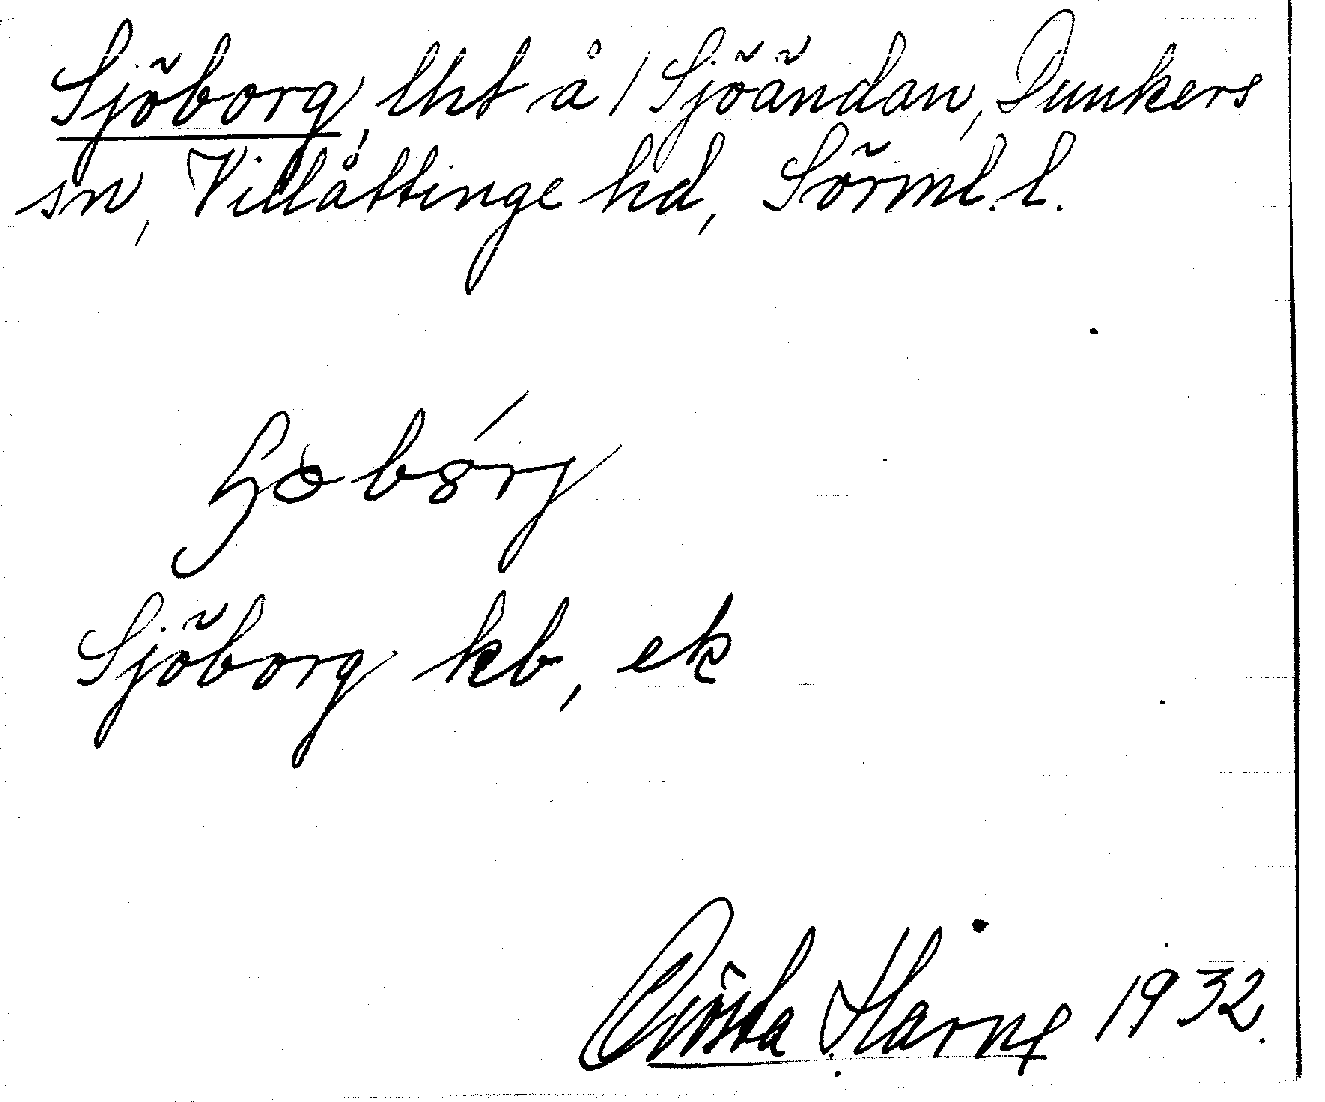 Sjöborg, lht å 1 Sjöändan, Dunkers
sn, Villåttinge hd, Sörml. l.
Sjöborg kb, ek
Gösta Harne 1932.